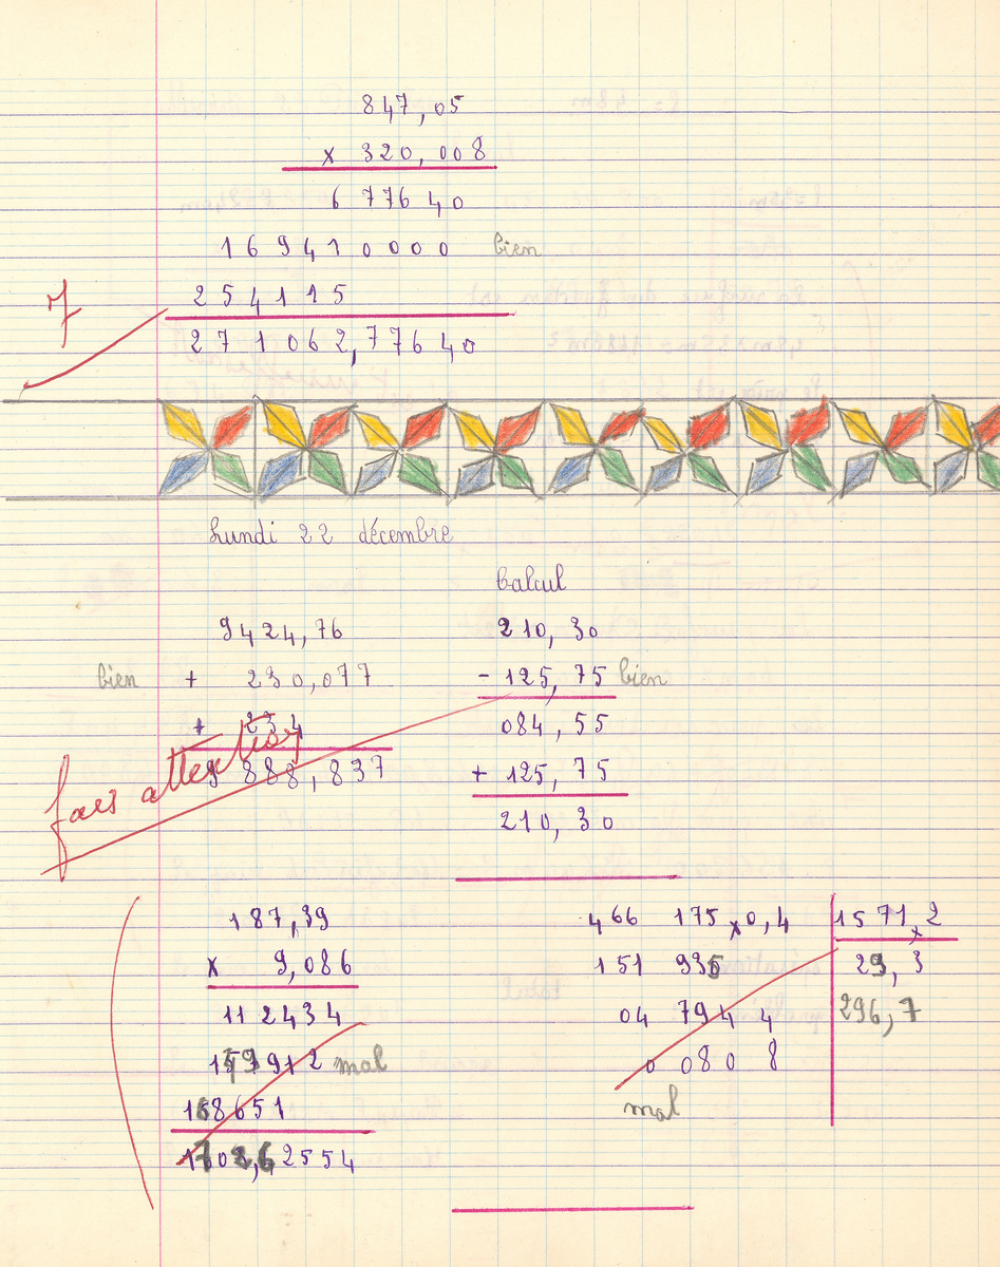 847,05
x 320,008
6 776 40
1 6 9 4 1 0 0 0 0 bien
2 5 4 1 1 5
7
2 7 1 0 6 2,7 7 6 4 0
Lundi 22 décembre
Calcul
9 4 2 4, 76
bien + 2 3 0, 0 7 7
+ 2 3 4
9 888, 837
fais attention
210, 30
- 125, 75 bien
084, 55
+ 125, 75
210, 30
187,39
x 9,086
11 2434
mal
1 8 6 5 1
2 5 5 4
466 175 x 0, 4 1571 x 2
151 935 29, 3
04 794 4 296, 7
0 080 8
mal